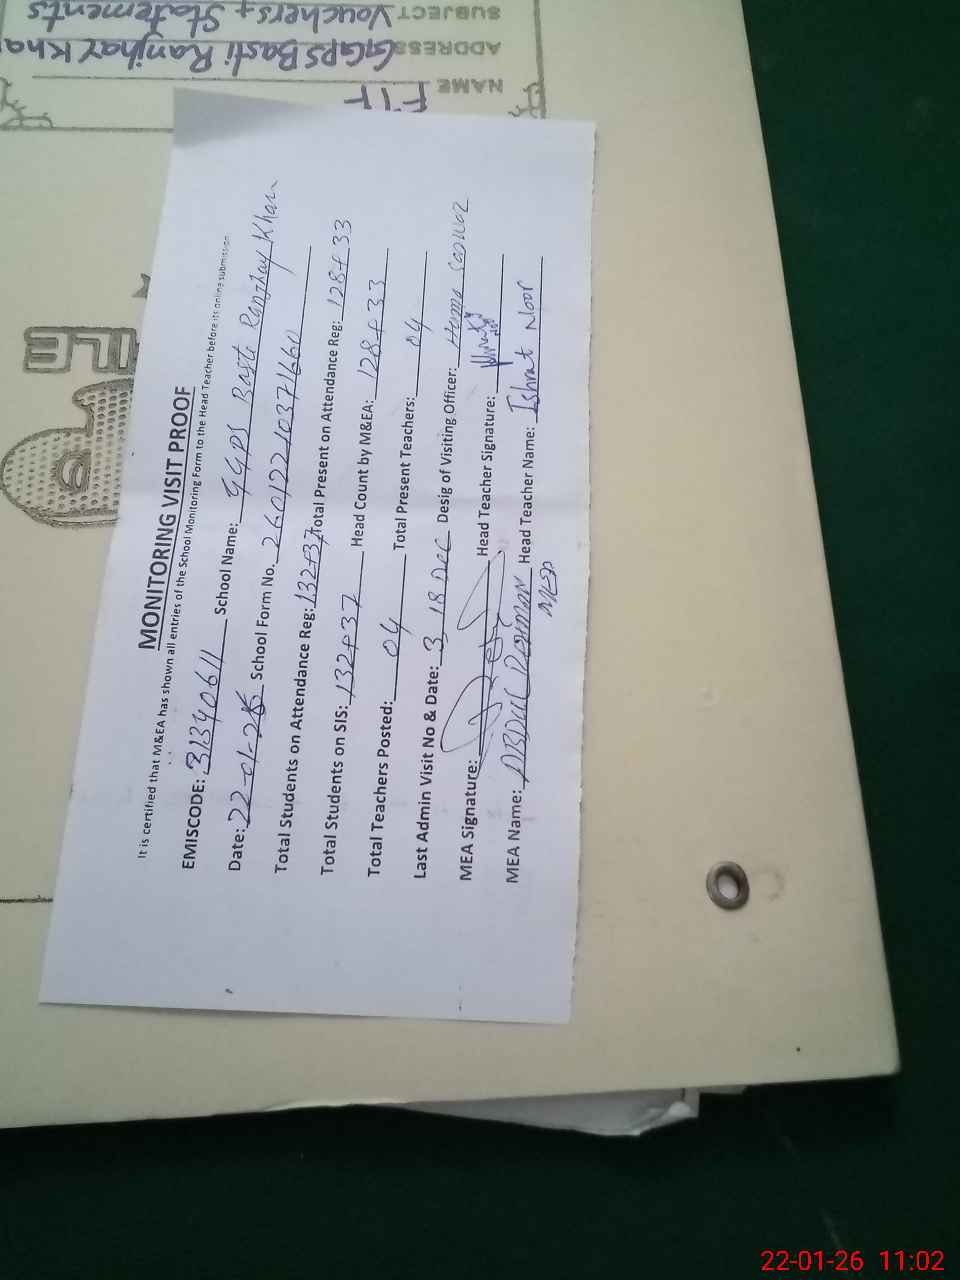 MONITORING VISIT PROOF
It is certified that M&EA has shown all entries of the School Monitoring Form to the Head Teacher before its online submission
EMISCODE: 31340611 School Name: GGPS Basti Ranjhay Khan
Date: 22-01-26 School Form No. 26012210371660
Total Students on Attendance Reg: 132+37 Total Present on Attendance Reg: 128+33
Total Students on SIS: 132+37 Head Count by M&EA: 128+33
Total Teachers Posted: 04 Total Present Teachers: 04
Last Admin Visit No & Date: 3 18 Dec Desig of Visiting Officer: Huma
MEA Signature: Head Teacher Signature:
MEA Name: ABDUL REHMAN Head Teacher Name: Ishrat Noor
MEA
NAME FTF
ADDRESS GGPS Basti Ranjhay Kha
SUBJECT Vouchers + Statements
FILE
22-01-26 11:02